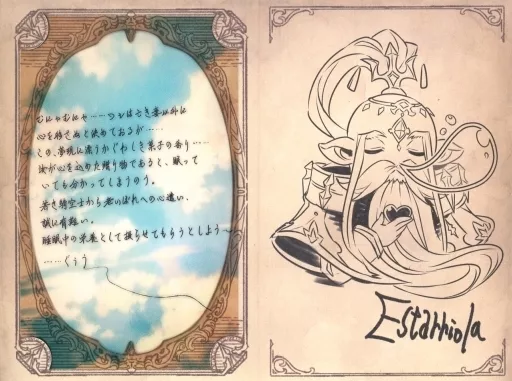 むにゃむにゃ……つがはさき妻以外に
心を移さぬと決めておるが……
この、夢現に漂うかぐわしき菓子の香り……
汝が心を込めた贈り物であると、眠って
いても分かってしまうのう。
若き騎空士から老いぼれへの心遣い、
誠に有難い。
睡眠中の栄養として摂らせてもらうとしよう〜
……ぐぅう
Estarriola